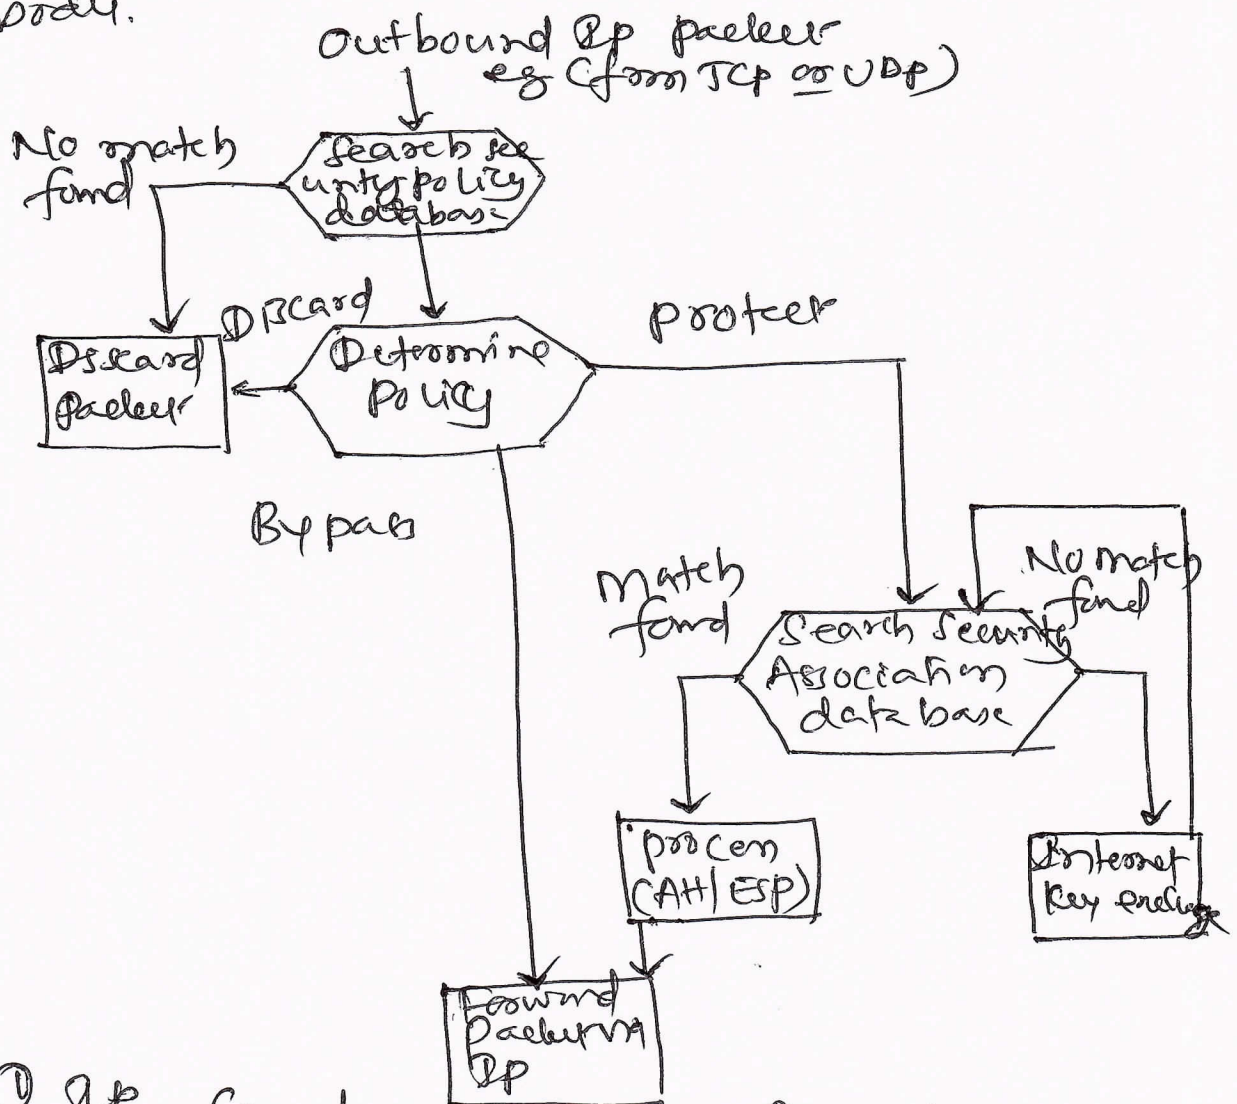 body.
Outbound Ip packet
eg (from TCP or UDP)
No match
found
Search sec
urity policy
database
Discard
Protect
Discard
Packet
Determine
Policy
Bypass
Match
found
No match
found
Search Security
Association
database
process
(AH/ESP)
Internet
Key exchange
Forward
Packet via
Ip